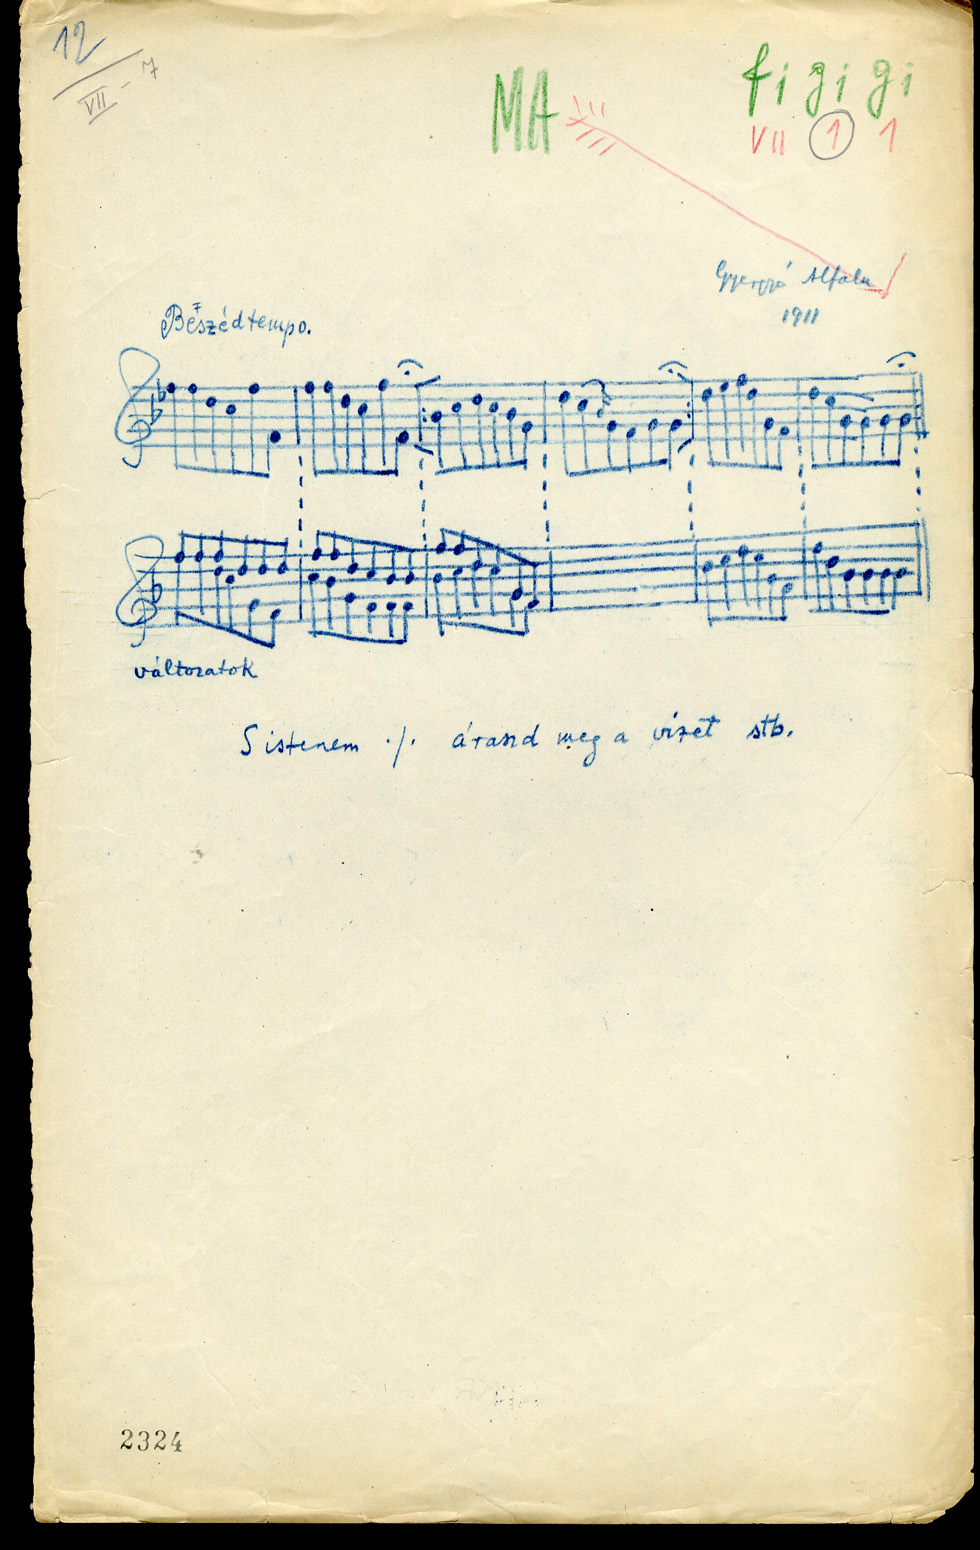 12
VII - 7
MA
fi gi gi
VII 1 1
Gyergyó Alfalu
1911
Beszédtempo.
változatok
S istenem ./. áraszd meg a vizet stb.
2324